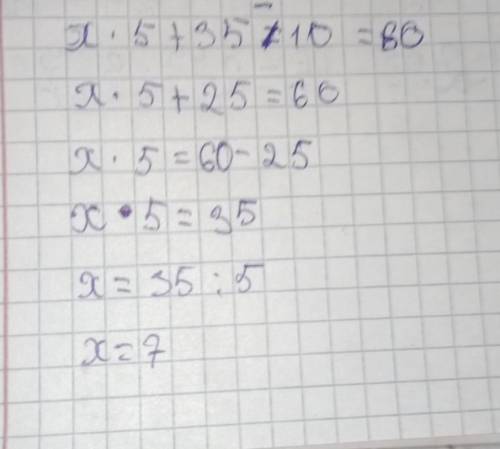 x · 5 + 35 - 10 = 60
x · 5 + 25 = 60
x · 5 = 60 - 25
x · 5 = 35
x = 35 : 5
x = 7